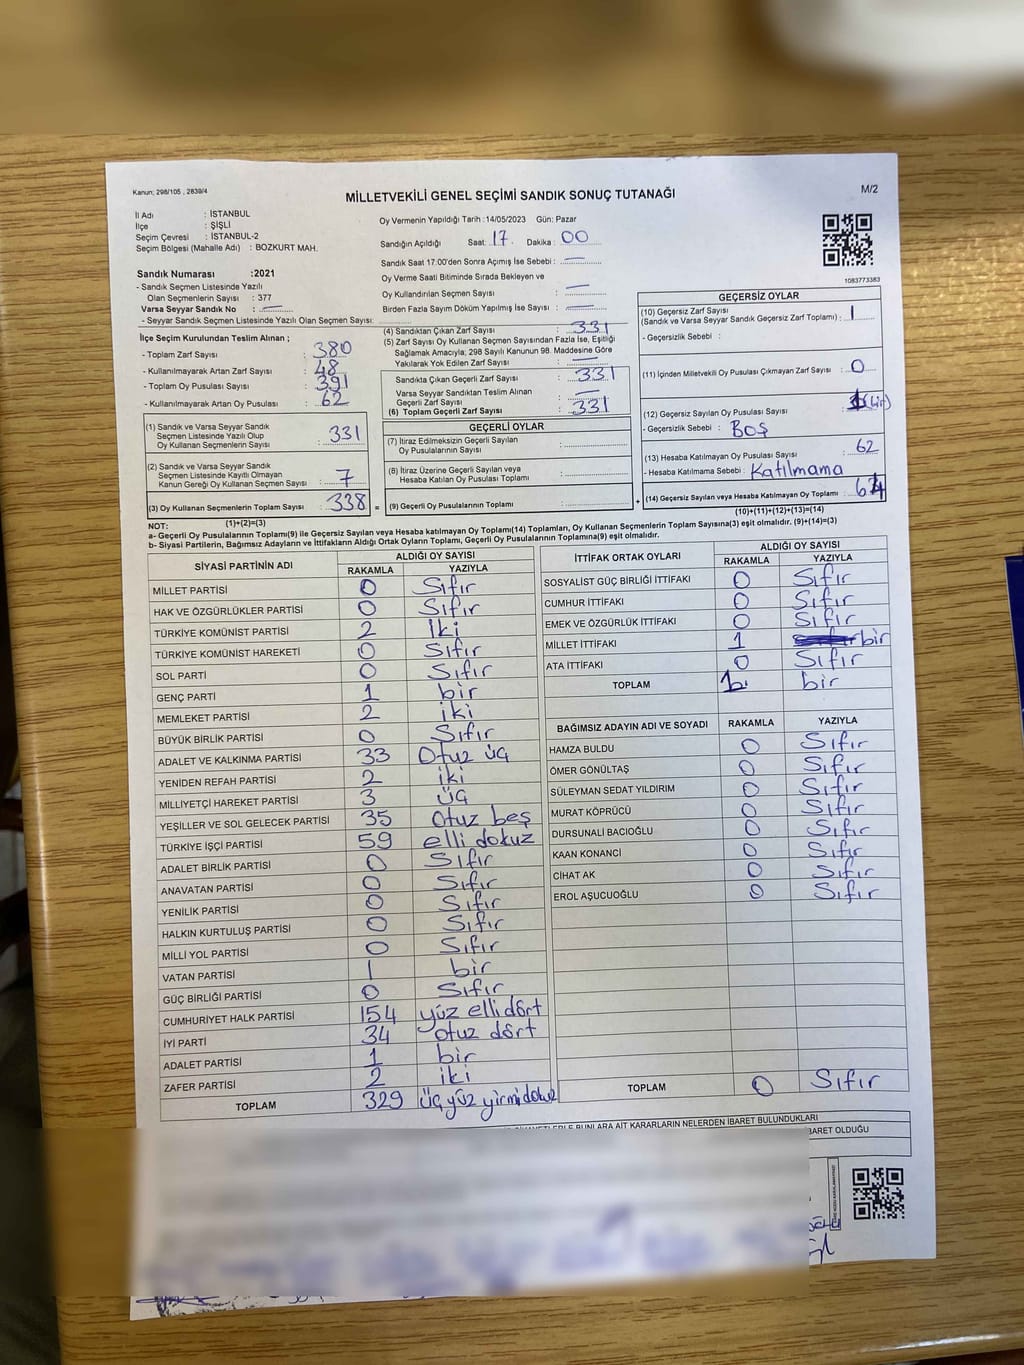 Kanun; 298/105 , 2839/4
MİLLETVEKİLİ GENEL SEÇİMİ SANDIK SONUÇ TUTANAĞI
M/2
İl Adı : İSTANBUL
İlçe : ŞİŞLİ
Seçim Çevresi : İSTANBUL-2
Seçim Bölgesi (Mahalle Adı) : BOZKURT MAH.
Oy Vermenin Yapıldığı Tarih :14/05/2023 Gün: Pazar
Sandığın Açıldığı Saat: 17 Dakika : 00
Sandık Saat 17:00'den Sonra Açımış İse Sebebi : —
Oy Verme Saati Bitiminde Sırada Bekleyen ve
Oy Kullandırılan Seçmen Sayısı : —
Birden Fazla Sayım Döküm Yapılmış İse Sayısı : —
1083773383
Sandık Numarası :2021
- Sandık Seçmen Listesinde Yazılı
Olan Seçmenlerin Sayısı : 377
Varsa Seyyar Sandık No : —
- Seyyar Sandık Seçmen Listesinde Yazılı Olan Seçmen Sayısı:
İlçe Seçim Kurulundan Teslim Alınan ;
- Toplam Zarf Sayısı : 380
- Kullanılmayarak Artan Zarf Sayısı : 48
- Toplam Oy Pusulası Sayısı : 391
- Kullanılmayarak Artan Oy Pusulası : 62
(1) Sandık ve Varsa Seyyar Sandık
Seçmen Listesinde Yazılı Olup
Oy Kullanan Seçmenlerin Sayısı : 331
(2) Sandık ve Varsa Seyyar Sandık
Seçmen Listesinde Kayıtlı Olmayan
Kanun Gereği Oy Kullanan Seçmen Sayısı : 7
(3) Oy Kullanan Seçmenlerin Toplam Sayısı : 338 =
(1)+(2)=(3)
(4) Sandıktan Çıkan Zarf Sayısı : 331
(5) Zarf Sayısı Oy Kullanan Seçmen Sayısından Fazla İse, Eşitliği
Sağlamak Amacıyla; 298 Sayılı Kanunun 98. Maddesine Göre
Yakılarak Yok Edilen Zarf Sayısı : —
Sandıkta Çıkan Geçerli Zarf Sayısı : 331
Varsa Seyyar Sandıktan Teslim Alınan
Geçerli Zarf Sayısı : —
(6) Toplam Geçerli Zarf Sayısı : 331
GEÇERLİ OYLAR
(7) İtiraz Edilmeksizin Geçerli Sayılan
Oy Pusulasının Sayısı :
(8) İtiraz Üzerine Geçerli Sayılan veya
Hesaba Katılan Oy Pusulası Toplamı :
(9) Geçerli Oy Pusulalarının Toplamı : +
GEÇERSİZ OYLAR
(10) Geçersiz Zarf Sayısı
(Sandık ve Varsa Seyyar Sandık Geçersiz Zarf Toplamı) : 1
- Geçersizlik Sebebi :
(11) İçinden Milletvekili Oy Pusulası Çıkmayan Zarf Sayısı : 0
(12) Geçersiz Sayılan Oy Pusulası Sayısı : 1 (bir)
- Geçersizlik Sebebi : BOŞ
(13) Hesaba Katılmayan Oy Pusulası Sayısı : 62
- Hesaba Katılmama Sebebi : Katılmama
(14) Geçersiz Sayılan veya Hesaba Katılmayan Oy Toplamı :
(10)+(11)+(12)+(13)=(14)
NOT:
a- Geçerli Oy Pusulalarının Toplamı(9) ile Geçersiz Sayılan veya Hesaba katılmayan Oy Toplamı(14) Toplamları, Oy Kullanan Seçmenlerin Toplam Sayısına(3) eşit olmalıdır. (9)+(14)=(3)
b- Siyasi Partilerin, Bağımsız Adayların ve İttifakların Aldığı Ortak Oyların Toplamı, Geçerli Oy Pusulalarının Toplamına(9) eşit olmalıdır.
SİYASİ PARTİNİN ADI ALDIĞI OY SAYISI
RAKAMLA YAZIYLA
MİLLET PARTİSİ 0 Sıfır
HAK VE ÖZGÜRLÜKLER PARTİSİ 0 Sıfır
TÜRKİYE KOMÜNİST PARTİSİ 2 İki
TÜRKİYE KOMÜNİST HAREKETİ 0 Sıfır
SOL PARTİ 0 Sıfır
GENÇ PARTİ 1 bir
MEMLEKET PARTİSİ 2 iki
BÜYÜK BİRLİK PARTİSİ 0 Sıfır
ADALET VE KALKINMA PARTİSİ 33 Otuz üç
YENİDEN REFAH PARTİSİ 2 iki
MİLLİYETÇİ HAREKET PARTİSİ 3 üç
YEŞİLLER VE SOL GELECEK PARTİSİ 35 otuz beş
TÜRKİYE İŞÇİ PARTİSİ 59 elli dokuz
ADALET BİRLİK PARTİSİ 0 Sıfır
ANAVATAN PARTİSİ 0 Sıfır
YENİLİK PARTİSİ 0 Sıfır
HALKIN KURTULUŞ PARTİSİ 0 Sıfır
MİLLİ YOL PARTİSİ 0 Sıfır
VATAN PARTİSİ 1 bir
GÜÇ BİRLİĞİ PARTİSİ 0 Sıfır
CUMHURİYET HALK PARTİSİ 154 yüz elli dört
İYİ PARTİ 34 otuz dört
ADALET PARTİSİ 1 bir
ZAFER PARTİSİ 2 iki
TOPLAM 329 üç yüz yirmi dokuz
İTTİFAK ORTAK OYLARI ALDIĞI OY SAYISI
RAKAMLA YAZIYLA
SOSYALİST GÜÇ BİRLİĞİ İTTİFAKI 0 Sıfır
CUMHUR İTTİFAKI 0 Sıfır
EMEK VE ÖZGÜRLÜK İTTİFAKI 0 Sıfır
MİLLET İTTİFAKI 1 bir
ATA İTTİFAKI 0 Sıfır
TOPLAM 1 bir
BAĞIMSIZ ADAYIN ADI VE SOYADI RAKAMLA YAZIYLA
HAMZA BULDU 0 Sıfır
ÖMER GÖNÜLTAŞ 0 Sıfır
SÜLEYMAN SEDAT YILDIRIM 0 Sıfır
MURAT KÖPRÜCÜ 0 Sıfır
DURSUNALİ BACIOĞLU 0 Sıfır
KAAN KONANCİ 0 Sıfır
CİHAT AK 0 Sıfır
EROL AŞUCUOĞLU 0 Sıfır
TOPLAM 0 Sıfır
BUNLARA AİT KARARLARIN NELERDEN İBARET BULUNDUKLARI
İBARET OLDUĞU